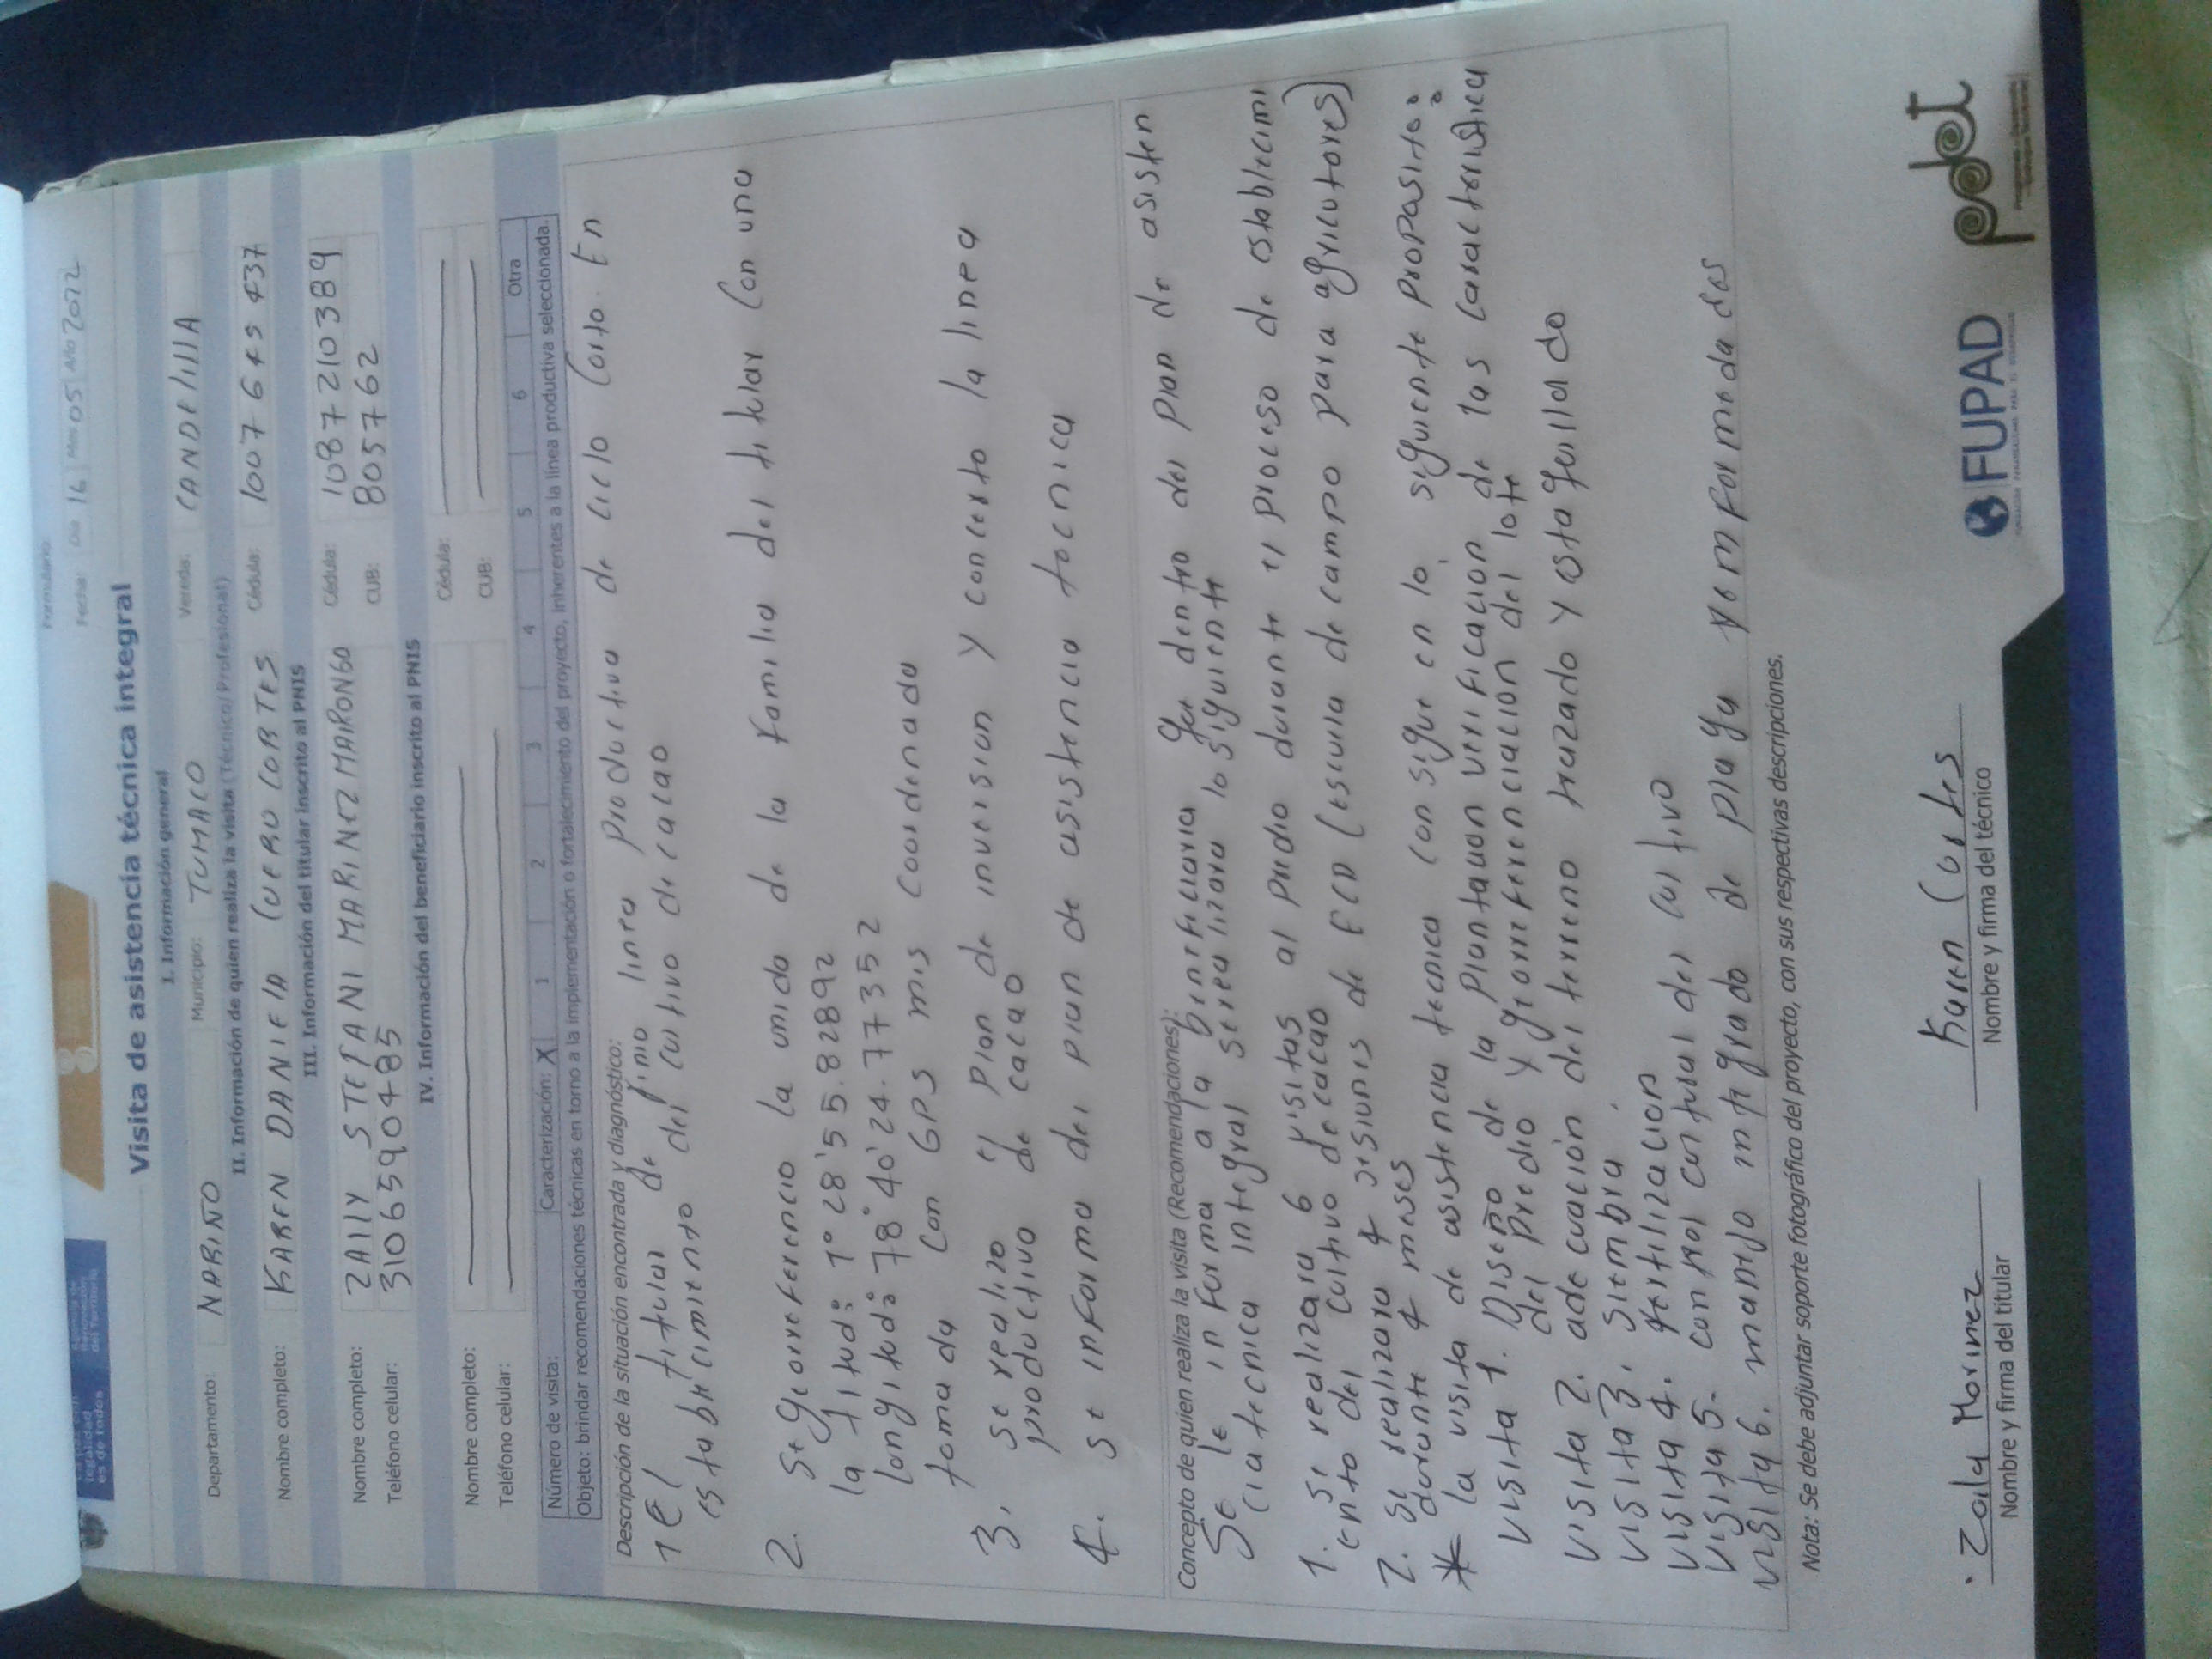 legalidad
es de todos
Agencia de
Renovación
del Territorio
Formulario:
Fecha: Día 16 Mes 05 Año 2022
Visita de asistencia técnica integral
I. Información general
Departamento: NARIÑO Municipio: TUMACO Vereda: CANDELILLA
II. Información de quien realiza la visita (Técnico/Profesional)
Nombre completo: KAREN DANIELA CUERO CORTES Cédula: 1007645437
III. Información del titular inscrito al PNIS
Nombre completo: ZAILY STEFANI MARINEZ MAIRONGO Cédula: 1087210389
Teléfono celular: 3106590485 CUB: 805762
IV. Información del beneficiario inscrito al PNIS
Nombre completo: Cédula:
Teléfono celular: CUB:
Número de visita: Caracterización: X 1 2 3 4 5 6 Otra
Objeto: brindar recomendaciones técnicas en torno a la implementación o fortalecimiento del proyecto, inherentes a la línea productiva seleccionada.
Descripción de la situación encontrada y diagnóstico:
1 El titular define linea productiva de ciclo corto. En
establecimiento del cultivo de cacao
2. se georreferencio la unida de la familia del titular con una
latitud: 1° 28' 55.82892
longitud: 78° 40' 24.77352
tomada con GPS mis coordenada
3. se realizo el plan de inversion y concerto la linea
productivo de cacao
4. se informa del plan de asistencia tecnica
Concepto de quien realiza la visita (Recomendaciones):
Se le informa a la beneficiaria que dentro del plan de asisten
cia tecnica integral se realizara lo siguiente
1. se realizara 6 visitas al predio durante el proceso de establecimi
ento del cultivo de cacao
2. se realizara 4 sesiones de ECA (escuela de campo para agricutores)
durante 4 meses
* la visita de asistencia tecnica consigue en lo siguiente proposito:
visita 1. Diseño de la plantacion verificacion de las caracteristica
del predio y georreferenciacion del lote
visita 2. adecuacion del terreno trazado y estaquillado
visita 3. siembra.
visita 4. fertilizacion
visita 5. control cultural del cultivo
visita 6. manejo integrado de plaga y emformedades
Nota: Se debe adjuntar soporte fotográfico del proyecto, con sus respectivas descripciones.
Zaila Marinez
Nombre y firma del titular
Karen Cortes
Nombre y firma del técnico
FUPAD
pdet